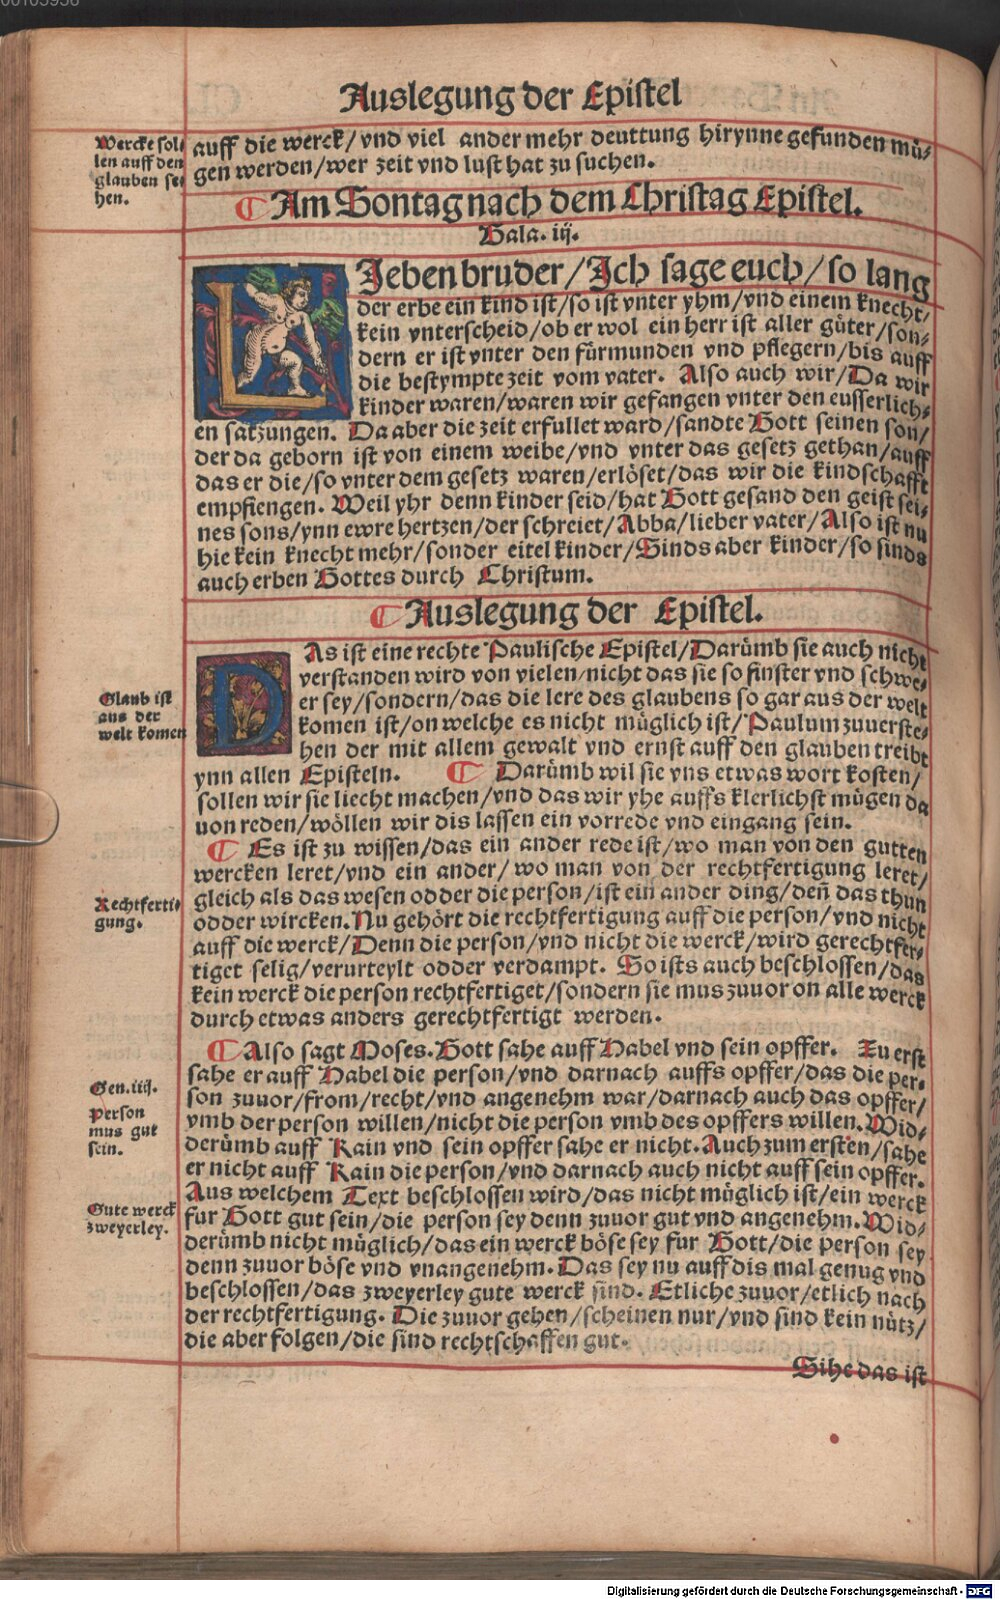 00105956
Auslegung der Epistel
Wercke sol-
len auff den
glauben se-
hen.
auff die werck/vnd viel ander mehr deuttung hirynne gefunden mü-
gen werden/wer zeit vnd lust hat zu suchen.
Am Sontag nach dem Christag Epistel.
Gala. iij.
LIeben bruder/Jch sage euch/so lang
der erbe ein kind ist/so ist vnter yhm/vnd einem knecht/
kein vnterscheid/ob er wol ein herr ist aller güter/son-
dern er ist vnter den fürmunden vnd pflegern/bis auff
die bestympte zeit vom vater. Also auch wir/Da wir
kinder waren/waren wir gefangen vnter den eusserlich-
en satzungen. Da aber die zeit erfullet ward/sandte Gott seinen son/
der da geborn ist von einem weibe/vnd vnter das gesetz gethan/auff
das er die/so vnter dem gesetz waren/erlöset/das wir die kindschafft
empfiengen. Weil yhr denn kinder seid/hat Gott gesand den geist sei-
nes sons/ynn ewre hertzen/der schreiet/Abba/lieber vater/Also ist nu
hie kein knecht mehr/sonder eitel kinder/Sinds aber kinder/so sinds
auch erben Gottes durch Christum.
Auslegung der Epistel.
DAs ist eine rechte Paulische Epistel/Darümb sie auch nicht
verstanden wird von vielen/nicht das sie so finster vnd schwe-
er sey/sondern/das die lere des glaubens so gar aus der welt
komen ist/on welche es nicht müglich ist/Paulum zuuerste-
hen der mit allem gewalt vnd ernst auff den glauben treibt
ynn allen Episteln. Darümb wil sie vns etwas wort kosten/
sollen wir sie liecht machen/vnd das wir yhe auffs klerlichst mügen da
uon reden/wöllen wir dis lassen ein vorrede vnd eingang sein.
Glaub ist
aus der
welt komen
Es ist zu wissen/das ein ander rede ist/wo man von den gutten
wercken leret/vnd ein ander/wo man von der rechtfertigung leret/
gleich als das wesen odder die person/ist ein ander ding/deñ das thun
odder wircken. Nu gehört die rechtfertigung auff die person/vnd nicht
auff die werck/Denn die person/vnd nicht die werck/wird gerechtfer-
tiget selig/verurteylt odder verdampt. So ists auch beschlossen/das
kein werck die person rechtfertiget/sondern sie mus zuuor on alle werck
durch etwas anders gerechtfertigt werden.
Rechtferti-
gung.
Also sagt Moses. Gott sahe auff Habel vnd sein opffer. Zu erst
sahe er auff Habel die person/vnd darnach auffs opffer/das die per-
son zuuor/from/recht/vnd angenehm war/darnach auch das opffer/
vmb der person willen/nicht die person vmb des opffers willen. Wid-
derümb auff Kain vnd sein opffer sahe er nicht. Auch zum ersten/sahe
er nicht auff Kain die person/vnd darnach auch nicht auff sein opffer.
Aus welchem Text beschlossen wird/das nicht müglich ist/ein werck
fur Gott gut sein/die person sey denn zuuor gut vnd angenehm. Wid-
derümb nicht müglich/das ein werck böse sey fur Gott/die person sey
denn zuuor böse vnd vnangenehm. Das sey nu auff dis mal genug vnd
beschlossen/das zweyerley gute werck sind. Etliche zuuor/etlich nach
der rechtfertigung. Die zuuor gehen/scheinen nur/vnd sind kein nütz/
die aber folgen/die sind rechtschaffen gut.
Gen. iiij.
Person
mus gut
sein.
Gute werck
zweyerley.
Sihe das ist
Digitalisierung gefördert durch die Deutsche Forschungsgemeinschaft - DFG